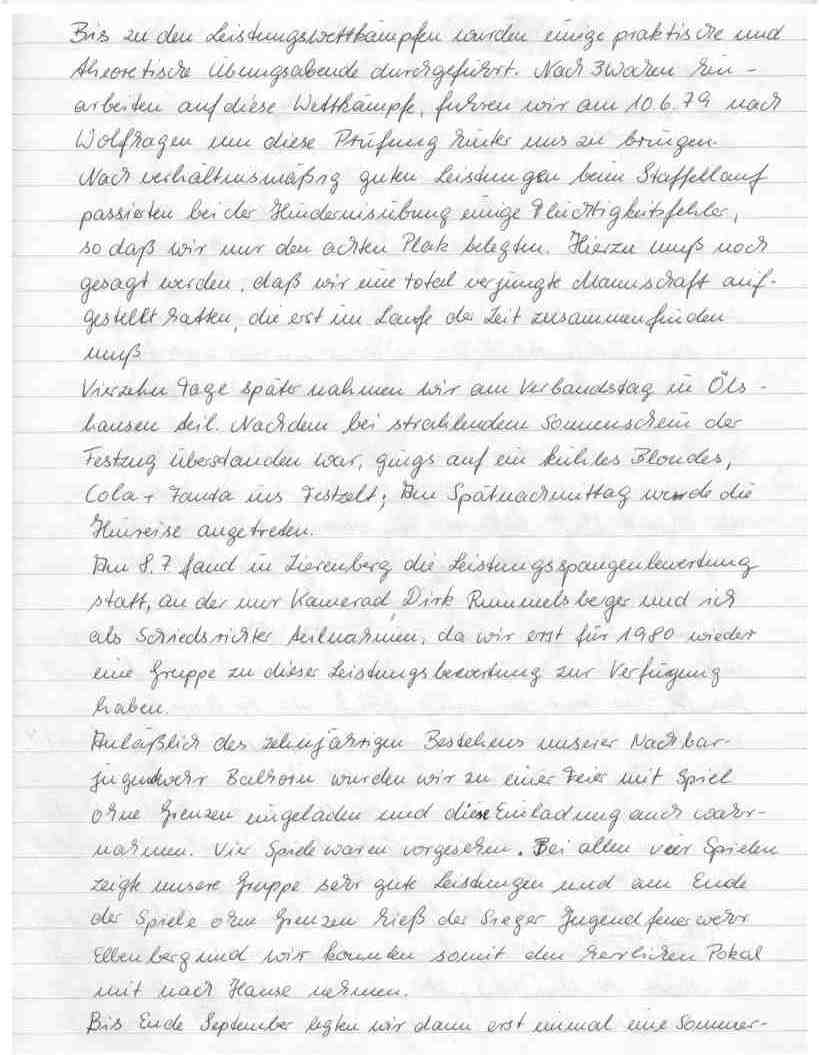 Bis zu den Leistungswettkämpfen wurden einige praktische und
theoretische Übungsabende durchgeführt. Nach 3 Wochen hin-
arbeiten auf diese Wettkämpfe, fuhren wir am 10.6.79 nach
Wolfhagen um diese Prüfung hinter uns zu bringen.
Nach verhältnismäßig guten Leistungen beim Staffellauf
passierten bei der Hindernisübung einige Flüchtigkeitsfehler,
so daß wir nur den achten Platz belegten. Hierzu muß noch
gesagt werden, daß wir eine total verjüngte Mannschaft auf-
gestellt hatten, die erst im Laufe der Zeit zusammenfinden
muß
Vierzehn Tage später nahmen wir am Verbandstag in Öls-
hausen teil. Nachdem bei strahlendem Sonnenschein der
Festzug überstanden war, gings auf ein kühles Blondes,
Cola + Fanta ins Festzelt; Am Spätnachmittag wurde die
Heimreise angetreten.
Am 8.7 fand in Zierenberg die Leistungsspangenbewertung
statt, an der nur Kamerad Dirk Rummelsberger und ich
als Schiedsrichter teilnahmen, da wir erst für 1980 wieder
eine Gruppe zu dieser Leistungsbewertung zur Verfügung
haben.
Anläßlich des zehnjährigen Bestehens unserer Nachbar-
jugendwehr Balhorn wurden wir zu einer Feier mit Spiel
ohne Grenzen eingeladen und diese Einladung auch wahr-
nahmen. Vier Spiele waren vorgesehen. Bei allen vier Spielen
zeigte unsere Gruppe sehr gute Leistungen und am Ende
der Spiele ohne Grenzen hieß der Sieger Jugendfeuerwehr
Elbenberg und wir konnten somit den herrlichen Pokal
mit nach Hause nehmen.
Bis Ende September legten wir dann erst einmal eine Sommer-